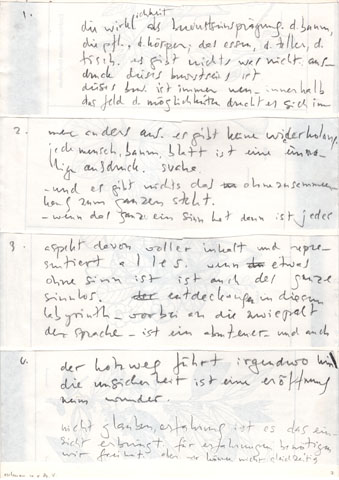 1.
die wirklichkeit als bewußtseinsprägung. d. baum,
die pfl., d. körper, das essen, d. teller, d.
tisch. es gibt nichts was nicht aus-
druck dieses bewustseis ist
dieses bew. ist immer neu - innerhalb
das feld d. möglichkeiten druckt es sich im-
2. mer anders aus. es gibt keine widerholung,
jede mensch, baum, blatt ist eine einma-
lige ausdruck. suche
- und es gibt nichts das ohne zusammen
hang zum ganzen steht.
- wenn das ganze ein sinn hat dann ist jeder
3. aspekt davon voller inhalt und reprä-
sentiert alles. wenn etwas
ohne sinn ist ist auch das ganze
sinnlos. entdeckungen in diesem
labyrinth - vorbei an die zwiespalt
der sprache - ist ein abenteuer und auch
4. der holzweg führt irgendwo hin
die unsicherheit ist eine eröffnung
zum wunder.
nicht glauben, erfahrung ist es das ein-
sicht erbringt, für erfahrungen benötigen
wir freiheit. nicht gleichzeitig